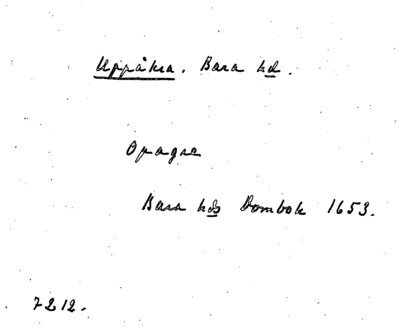 Uppåkra. Bara hd.
Opagre
Bara hds Dombok 1653.
7212.